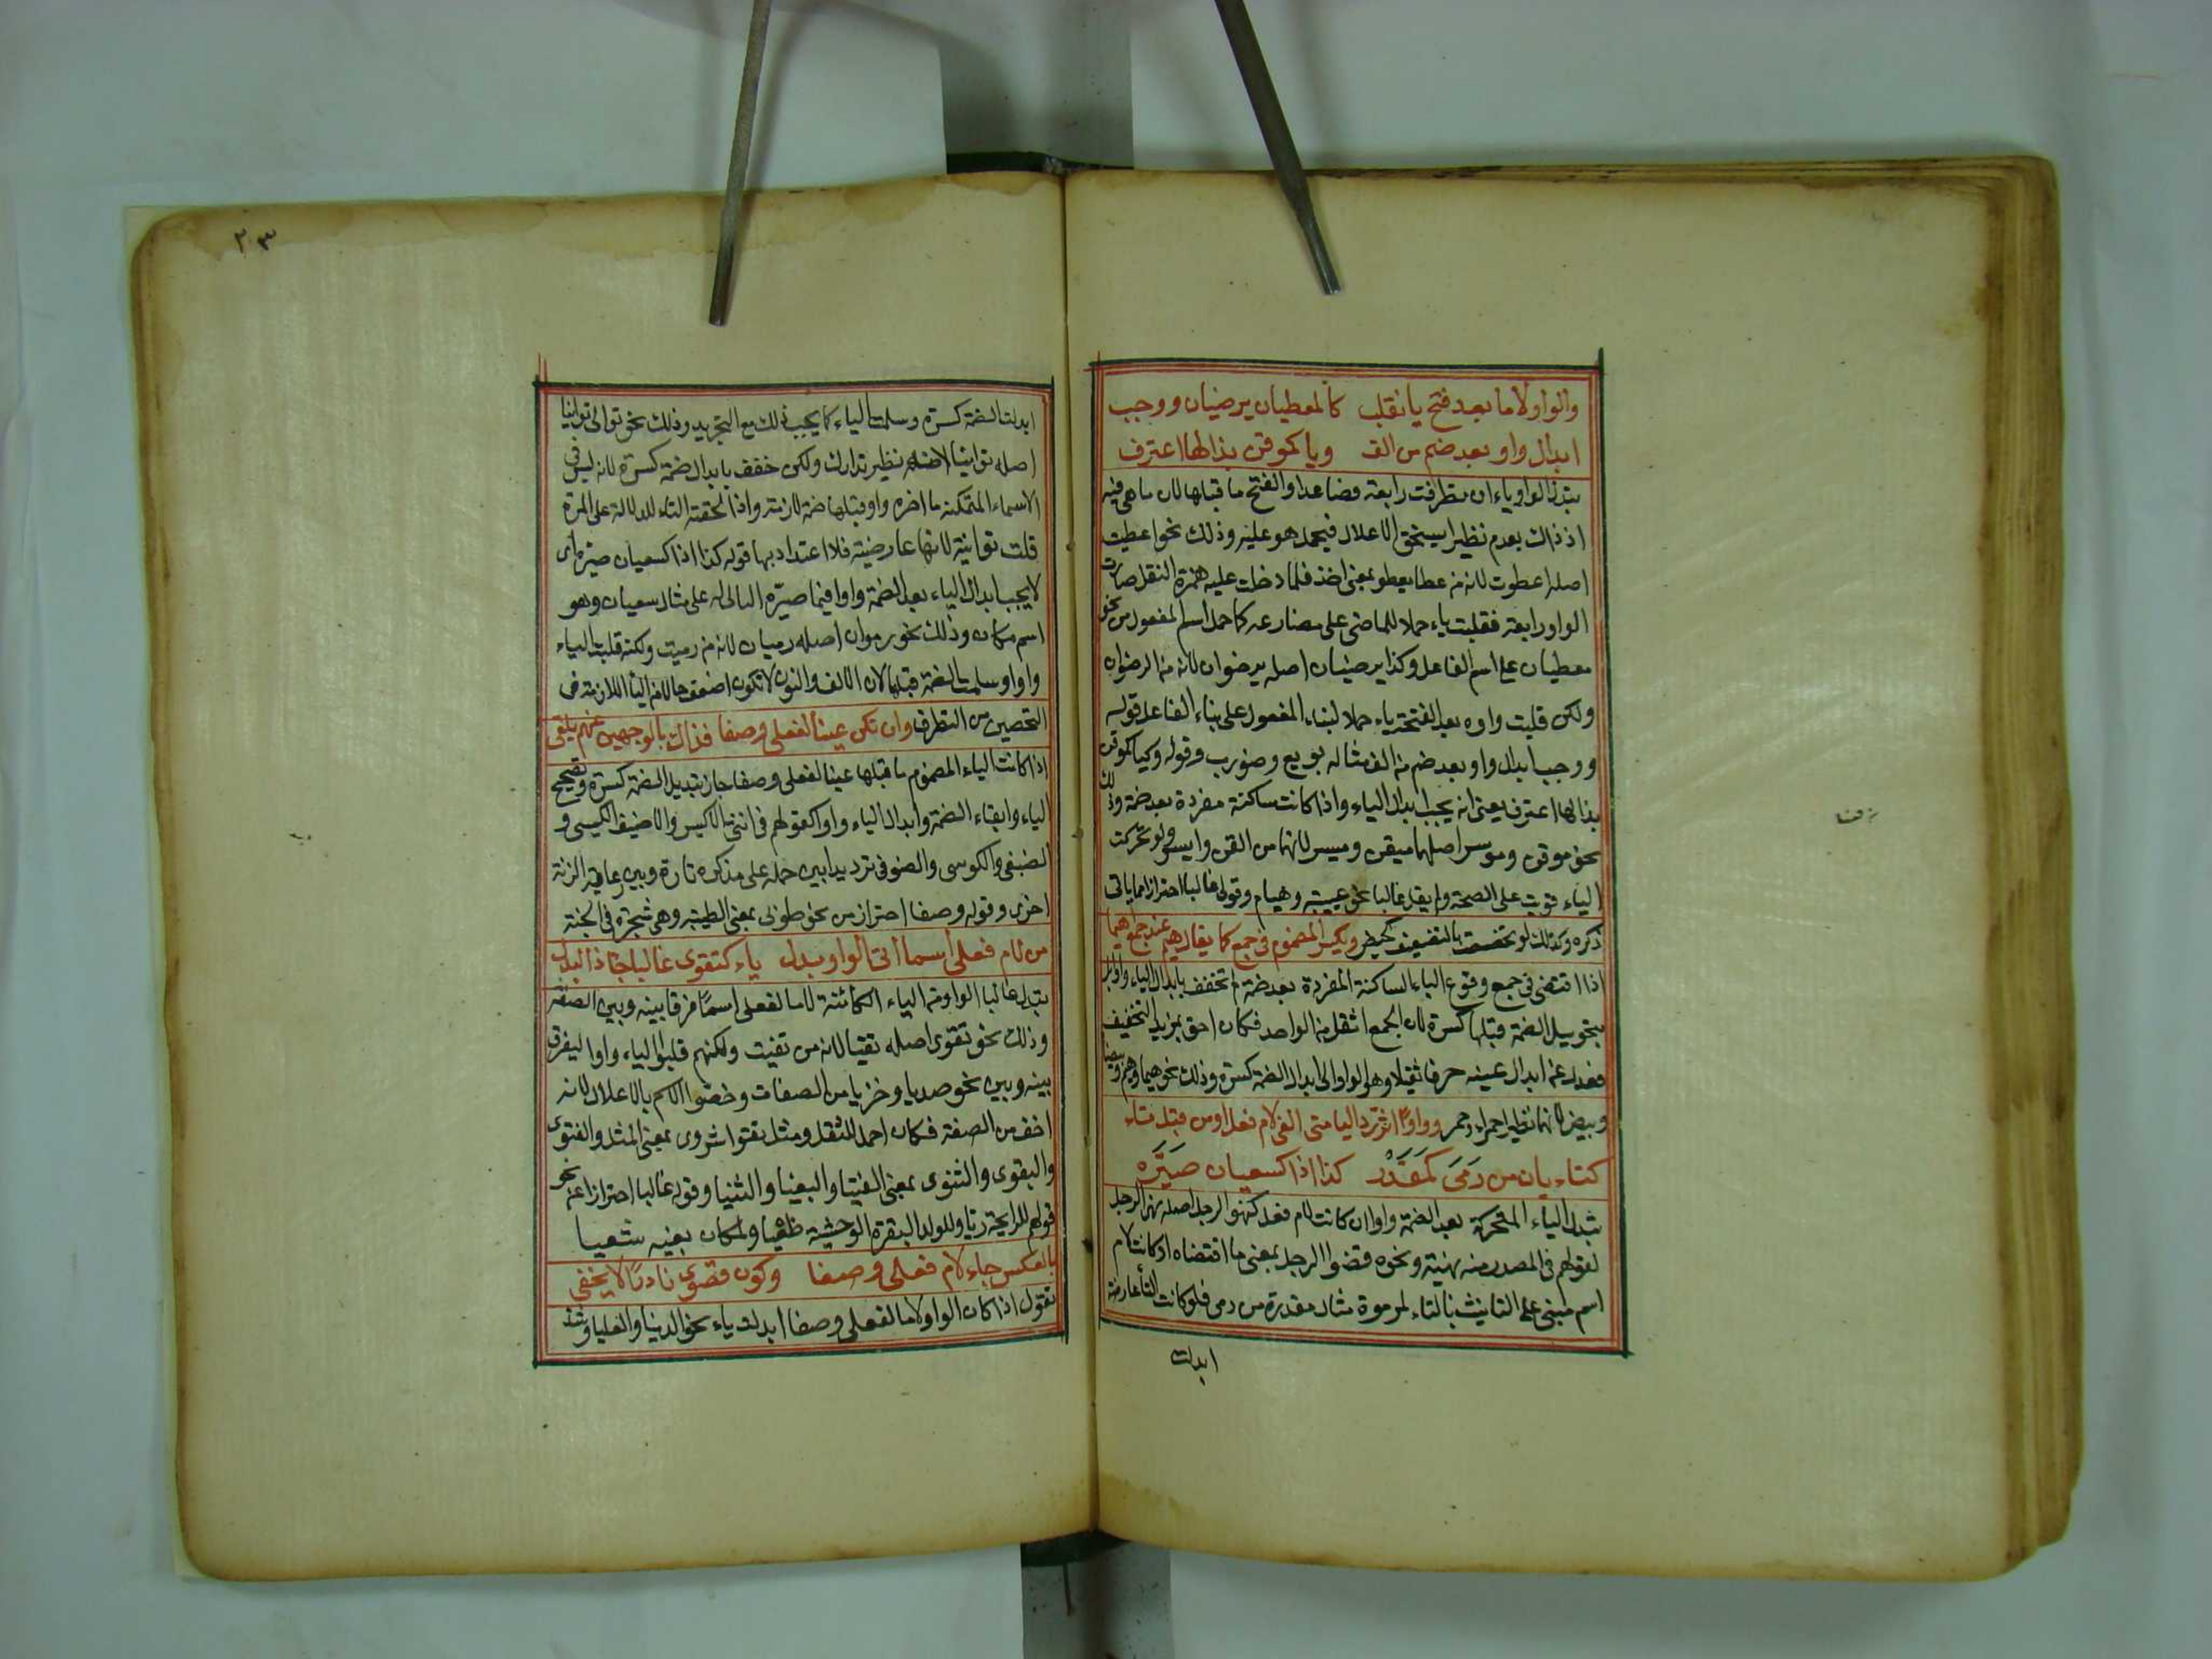 والواو لاما بعد فتح يا نقلب كالمعطيان يرضيان ووجب
ابدال واو بعد ضم من الف ويا كموقن بذا لها اعترف
تبدل الواو ياء ان تطرفت رابعة فصاعدا وانفتح ما قبلها لان ما هي فيه
اذ ذاك بعدم نظيرا يستحق الاعلال فيحمل هو عليه وذلك نحو اعطيت
اصله اعطوت لانه من عطا يعطو بمعنى اخذ فلما دخلت عليه همزة النقل صارت
الواو رابعة فقلبت ياء حملا للماضى على مضارعه كما حمل اسم المفعول من نحو
معطيان على اسم الفاعل وكذا يرضيان اصله يرضوان لانه من الرضوان
ولكن قلبت واوه بعد الفتحة ياء حملا لبناء المفعول على بناء الفاعل قوله
ووجب ابدال واو بعد ضم من الف مثاله بويع وضورب وقوله وكيا كموقن
بذا لها اعترف يعنى انه يجب ابدال الياء واذا كانت ساكنة مفردة بعد ضمة وذلك
نحو موقن وموسر اصلهما ميقن وميسر لانهما من ايقن وايسر ولو تحركت
الياء قويت على الصحة ولم يقل غالبا نحو عيبة وهيام وقولى غالبا احترازا مما ياتى
ذكره وكذلك لو تحصنت بالتضعيف كحيض ويكسر المضموم فى جمع كما يقال هيم عند جمع اهيما
اذا اقتضى فى جمع وقوع الياء الساكنة المفردة بعد ضمة لم تخفف بابدال الياء واوا بل
بتحويل الضمة قبلها كسرة لان الجمع اثقل من الواحد فكان احق بمزيد التخفيف
فعدل عن ابدال عينه حرفا ثقيلا وهو الواو الى ابدال الضمة كسرة وذلك نحو هيما وهيم وبيضا
وبيض لانهما نظير احمراء وحمر وواوا اثر ترد اليا متى الفى لام فعل او من قبل تاء
كتاء بان من رمى كمقدر كذا اذا كسبعان صيره
تبدل الياء المتحركة بعد الضمة واوا ان كانت لام فعل كنهو الرجل اصله نهى الرجل
لقولهم فى المصدر منه نهية ونحوه قضو الرجل بمعنى ما اقضاه او كانت لام
اسم مبنى على التانيث بالتاء لمرموة مثال مقدرة من رمى فلو كانت التا عارضة
ابدلت
٢٠٣
ابدلت الضمة كسرة وسلمت الياء كما يجب ذلك مع التجريد وذلك نحو توالى توانيا
اصله توانيا لانه نظير تدارك ولكن خفف بابدال ضمة كسرة لانه ليس فى
الاسماء المتمكنة ما اخره واو قبلها ضمة لازمة واذا لحقته التاء للدلالة على المرة
قلت توانية لانها عارضية فلا اعتداد بها قوله كذا اذا كسبعان صيره اى
لا يجب ابدال الياء بعد الضمة واوا فيما صيره البانى له على مثال سبعان وهو
اسم مكان وذلك نحو رموان اصله رميان لانه من رميت ولكنه قلبت الياء
واوا وسلمت الضمة قبلها لان الالف والنون لا تكون اضعف حالا من التا اللازمة فى
التحصين من التطرف وان تكن عينا لفعلى وصفا فذاك بالوجهين عنهم يلفى
اذا كانت الياء المضموم ما قبلها عينا لفعلى وصفا جاز تبديل الضمة كسرة وتصحيح
الياء وابقاء الضمة وابدال الياء واوا كقولهم فى انثى الاكيس والاضيق الكيسى و
الضيقى والكوسى والضوقى ترديدا بين حمله على مذكره تارة وبين رعاية الزنة
اخرى وقوله وصفا احتراز من نحو طوبى بمعنى الطيبة وهى شجرة فى الجنة
من لام فعلى اسما اتى الواو بدل ياء كتقوى غالبا جا ذا البدل
تبدل غالبا الواو من الياء الكائنة لاما لفعلى اسما فرقا بينه وبين الصفة
وذلك نحو تقوى اصله تقيا لانه من تقيت ولكنهم قلبوا الياء واوا ليفرق
بينه وبين نحو صديا وخزيا من الصفات وخصوا الاسم بالاعلال لانه
اخف من الصفة فكان احمل للثقل ومثل تقوى شروى بمعنى المثل والفتوى
والبقوى والثنوى بمعنى الفتيا والبقيا والثنيا وقوله غالبا احترازا عن نحو
قولهم للرايحة ريا ولولد البقرة الوحشية طغيا ولمكان بعينه سعيا
بالعكس جاء لام فعلى وصفا وكون قصوى نادرا لا يخفى
تقول اذا كان الواو لاما لفعلى وصفا ابدلت ياء نحو الدنيا والعليا وشذ